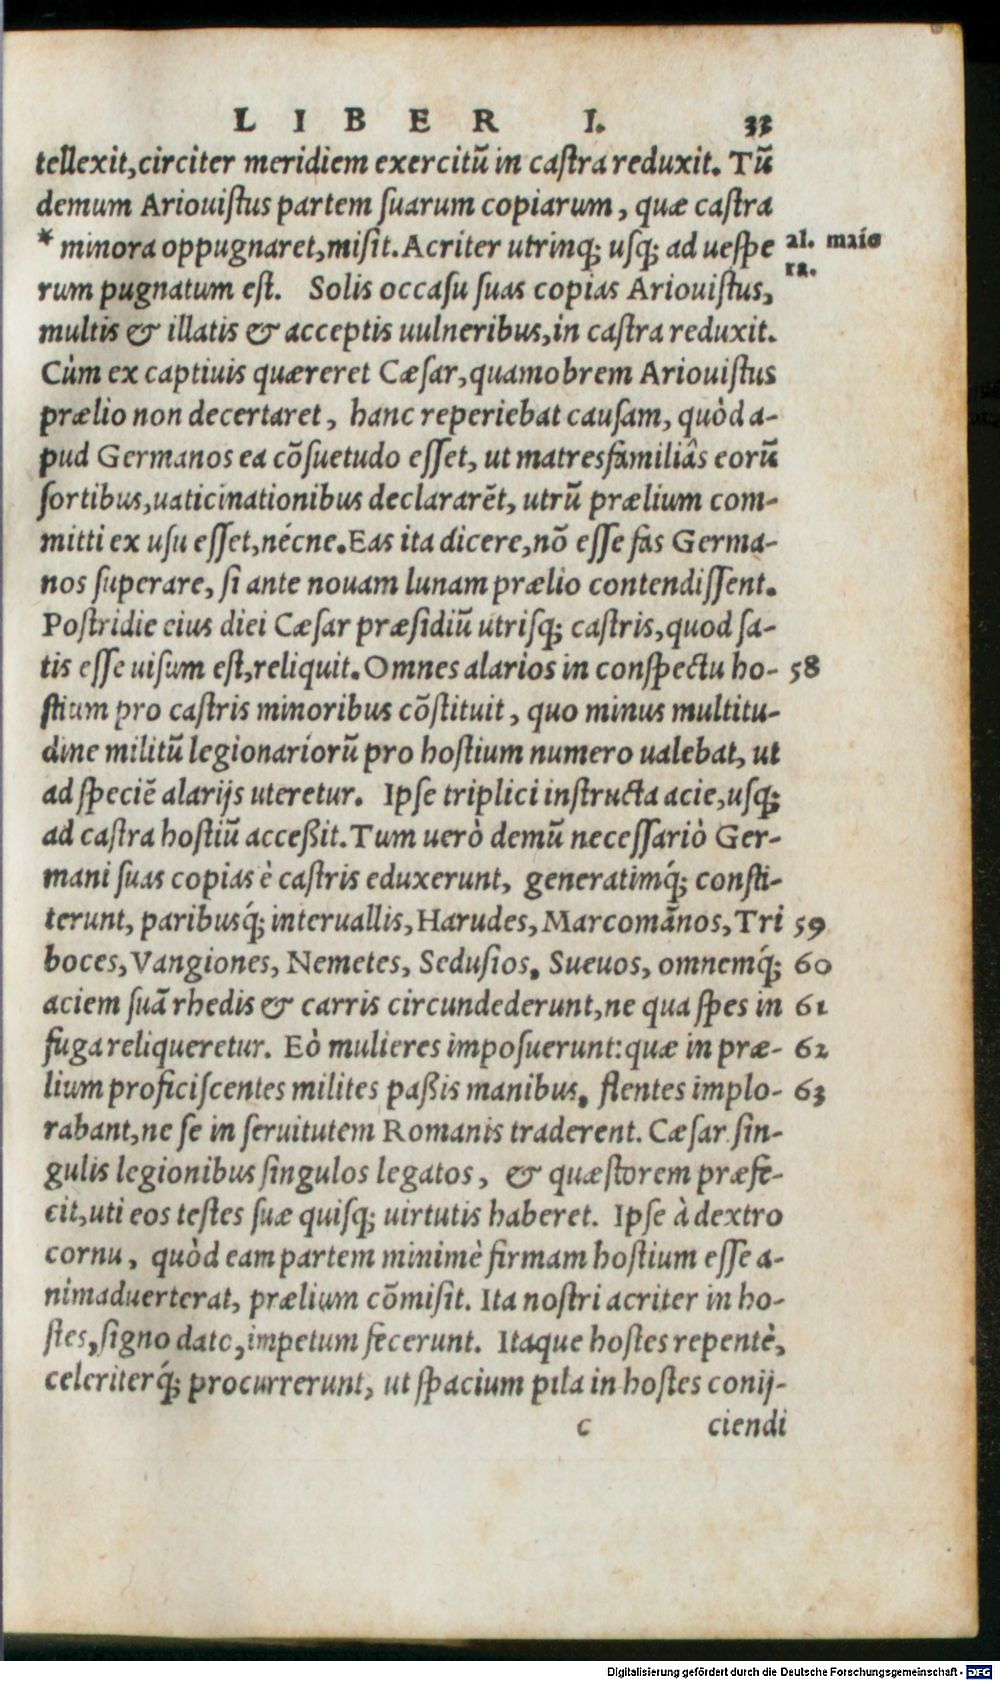 LIBER I. 33
tellexit,circiter meridiem exercitū in castra reduxit. Tū
demum Ariouistus partem suarum copiarum, quæ castra
* minora oppugnaret,misit.Acriter utrinq; usq; ad uespe al. maio
ra.
rum pugnatum est. Solis occasu suas copias Ariouistus,
multis & illatis & acceptis uulneribus,in castra reduxit.
Cùm ex captiuis quæreret Cæsar,quamobrem Ariouistus
prælio non decertaret, hanc reperiebat causam, quòd a-
pud Germanos ea cōsuetudo esset, ut matresfamiliâs eorū
sortibus,uaticinationibus declararēt, utrū prælium com-
mitti ex usu esset,nécne.Eas ita dicere,nō esse fas Germa-
nos superare, si ante nouam lunam prælio contendissent.
Postridie eius diei Cæsar præsidiū utrisq; castris,quod sa-
tis esse uisum est,reliquit. Omnes alarios in conspectu ho- 58
stium pro castris minoribus cōstituit, quo minus multitu-
dine militū legionariorū pro hostium numero ualebat, ut
ad speciē alarijs uteretur. Ipse triplici instructa acie,usq;
ad castra hostiū acceßit. Tum uerò demū necessariò Ger-
mani suas copias è castris eduxerunt, generatimq́; consti-
terunt, paribusq́; interuallis, Harudes, Marcomānos, Tri 59
boces, Vangiones, Nemetes, Sedusios. Sueuos, omnemq́; 60
aciem suā rhedis & carris circundederunt,ne qua spes in 61
fuga reliqueretur. Eò mulieres imposuerunt:quæ in præ- 62
lium proficiscentes milites paßis manibus. flentes implo- 63
rabant,ne se in seruitutem Romanis traderent. Cæsar sin-
gulis legionibus singulos legatos, & quæstorem præfe-
cit,uti eos testes suæ quisq; uirtutis haberet. Ipse à dextro
cornu, quòd eam partem minimè firmam hostium esse a-
nimaduerterat, prælium cōmisit. Ita nostri acriter in ho-
stes,signo dato,impetum fecerunt. Itaque hostes repentè,
celeriterq́; procurrerunt, ut spacium pila in hostes conij-
c ciendi
Digitalisierung gefördert durch die Deutsche Forschungsgemeinschaft - DFG